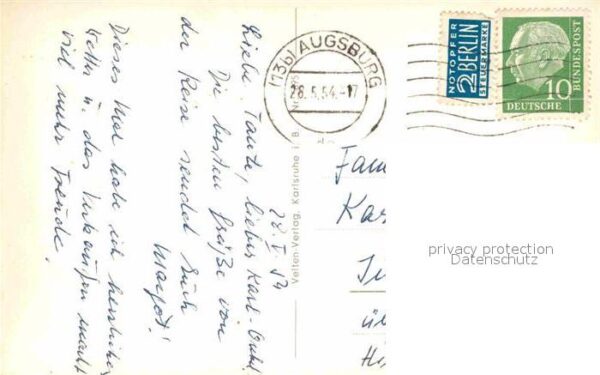 28. V. 54
Liebe Tante, lieber Karl-Onkel
Die besten Grüße von
der Reise sendet Euch
Margot!
Dieses Mal habe ich herrliches
Wetter u. das Verkaufen macht
viel mehr Freude.
Velten-Verlag, Karlsruhe i. B.
(13b) AUGSBURG
28.5.54.-17
NOTOPFER
2 BERLIN
STEUERMARKE
10
DEUTSCHE
BUNDESPOST
Fam
Kar
privacy protection
Datenschutz